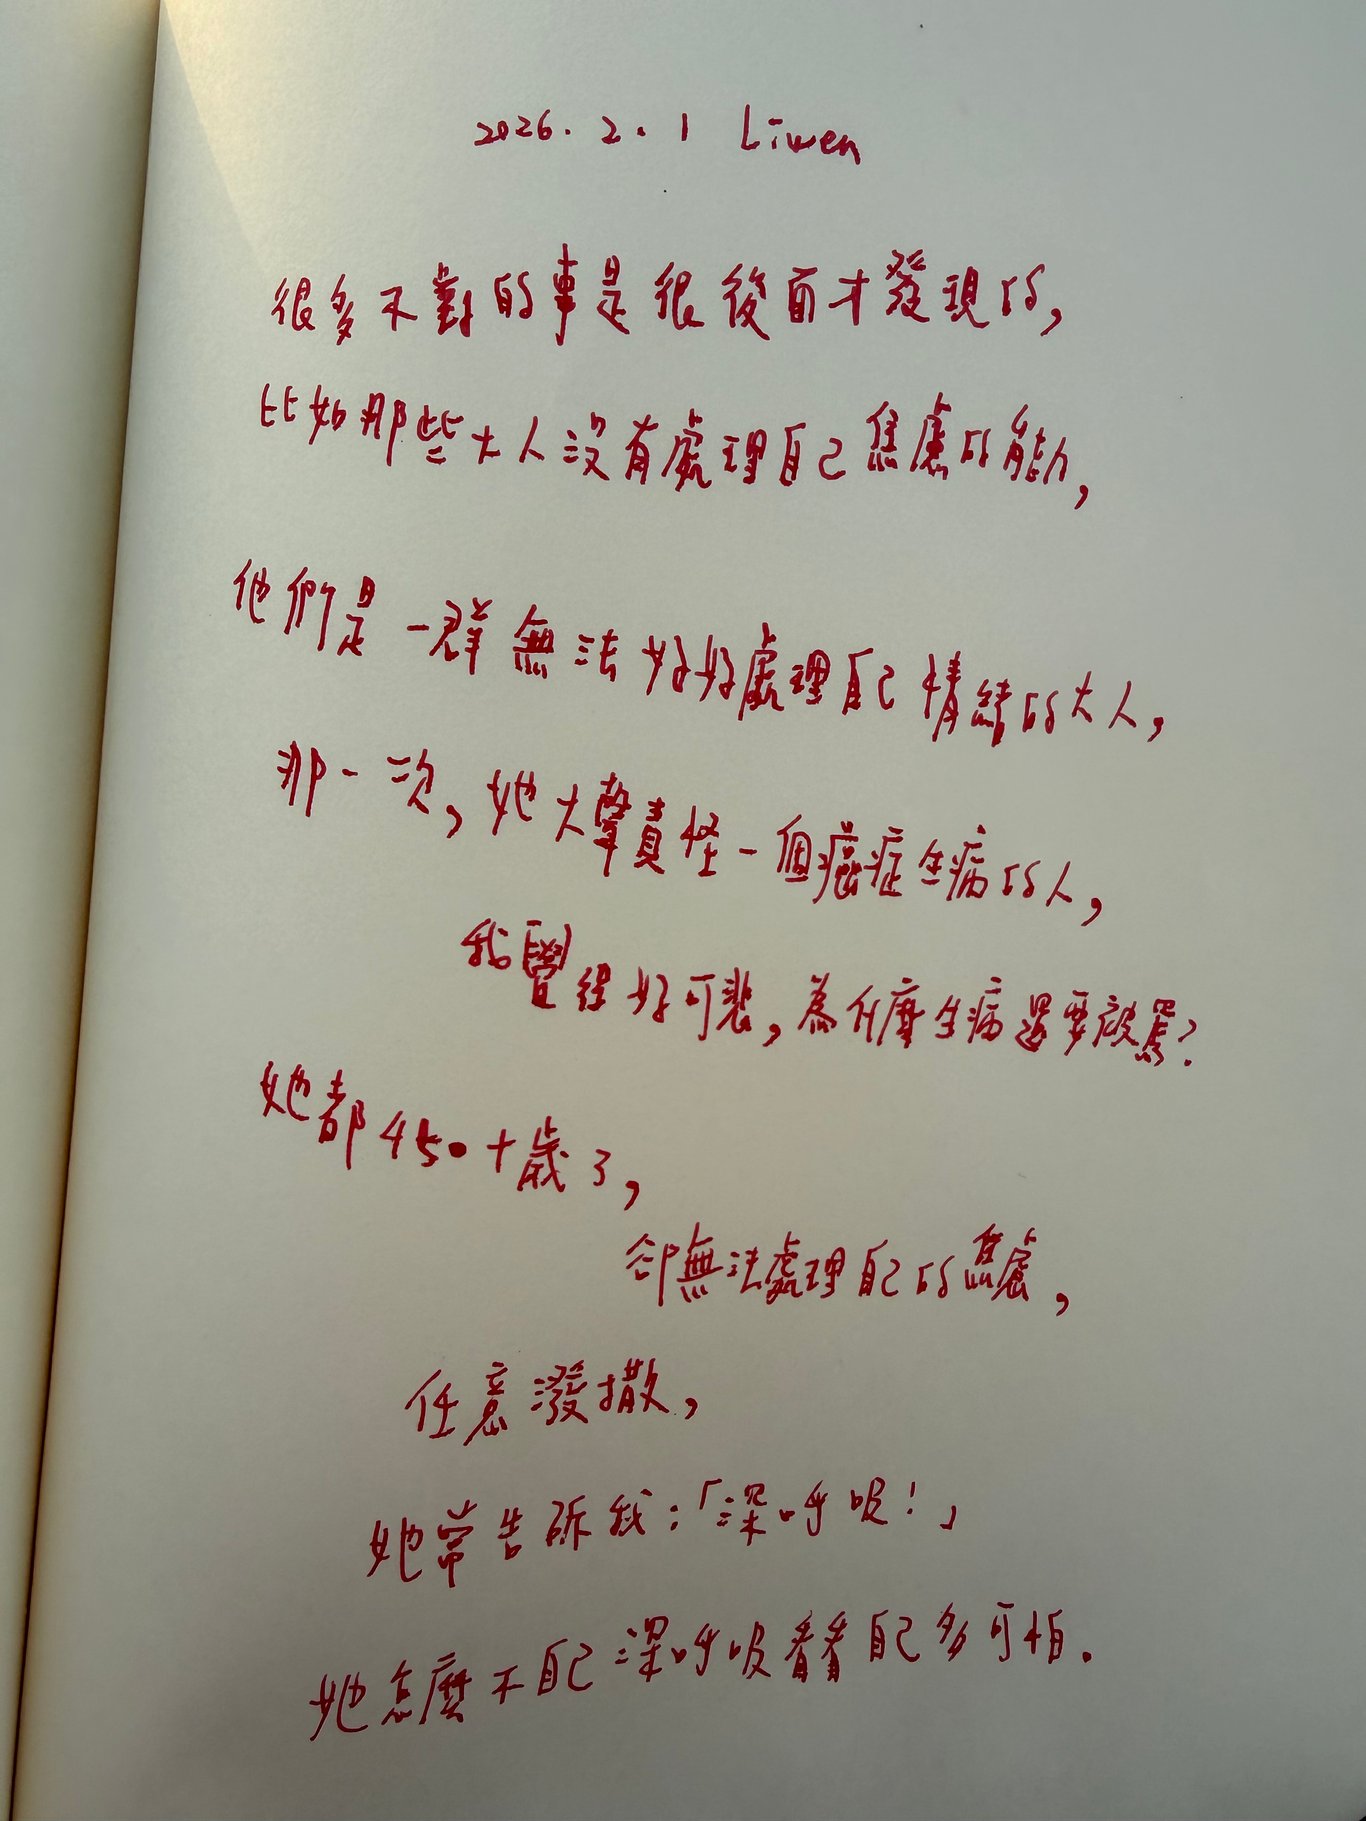 2026.2.1 Liwen
很多不對的事是很後面才發現的,
比如那些大人沒有處理自己焦慮的能力,
他們是一群無法好好處理自己情緒的大人,
那一次,她大聲責怪一個癌症生病的人,
我覺得好可悲,為什麼生病還要被罵?
她都45.十歲了,
卻無法處理自己的焦慮,
任意潑撒,
她常告訴我:「深呼吸!」
她怎麼不自己深呼吸看看自己多可怕.